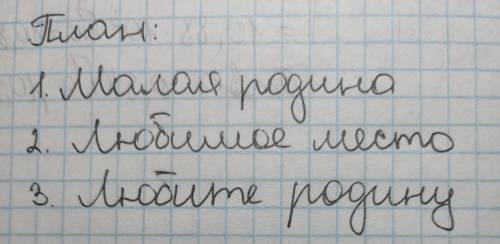 План:
1. Малая родина
2. Любимое место
3. Любите родину